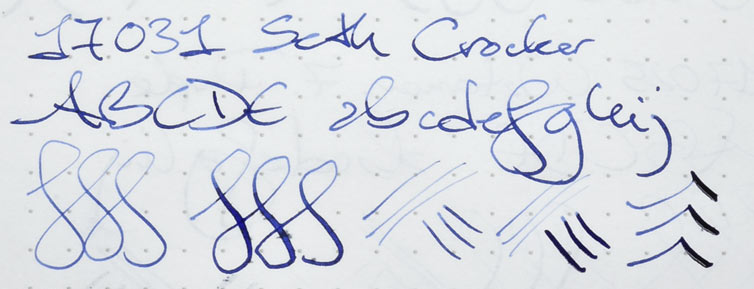 17031 Seth Crocker
ABCDE abcdefghij